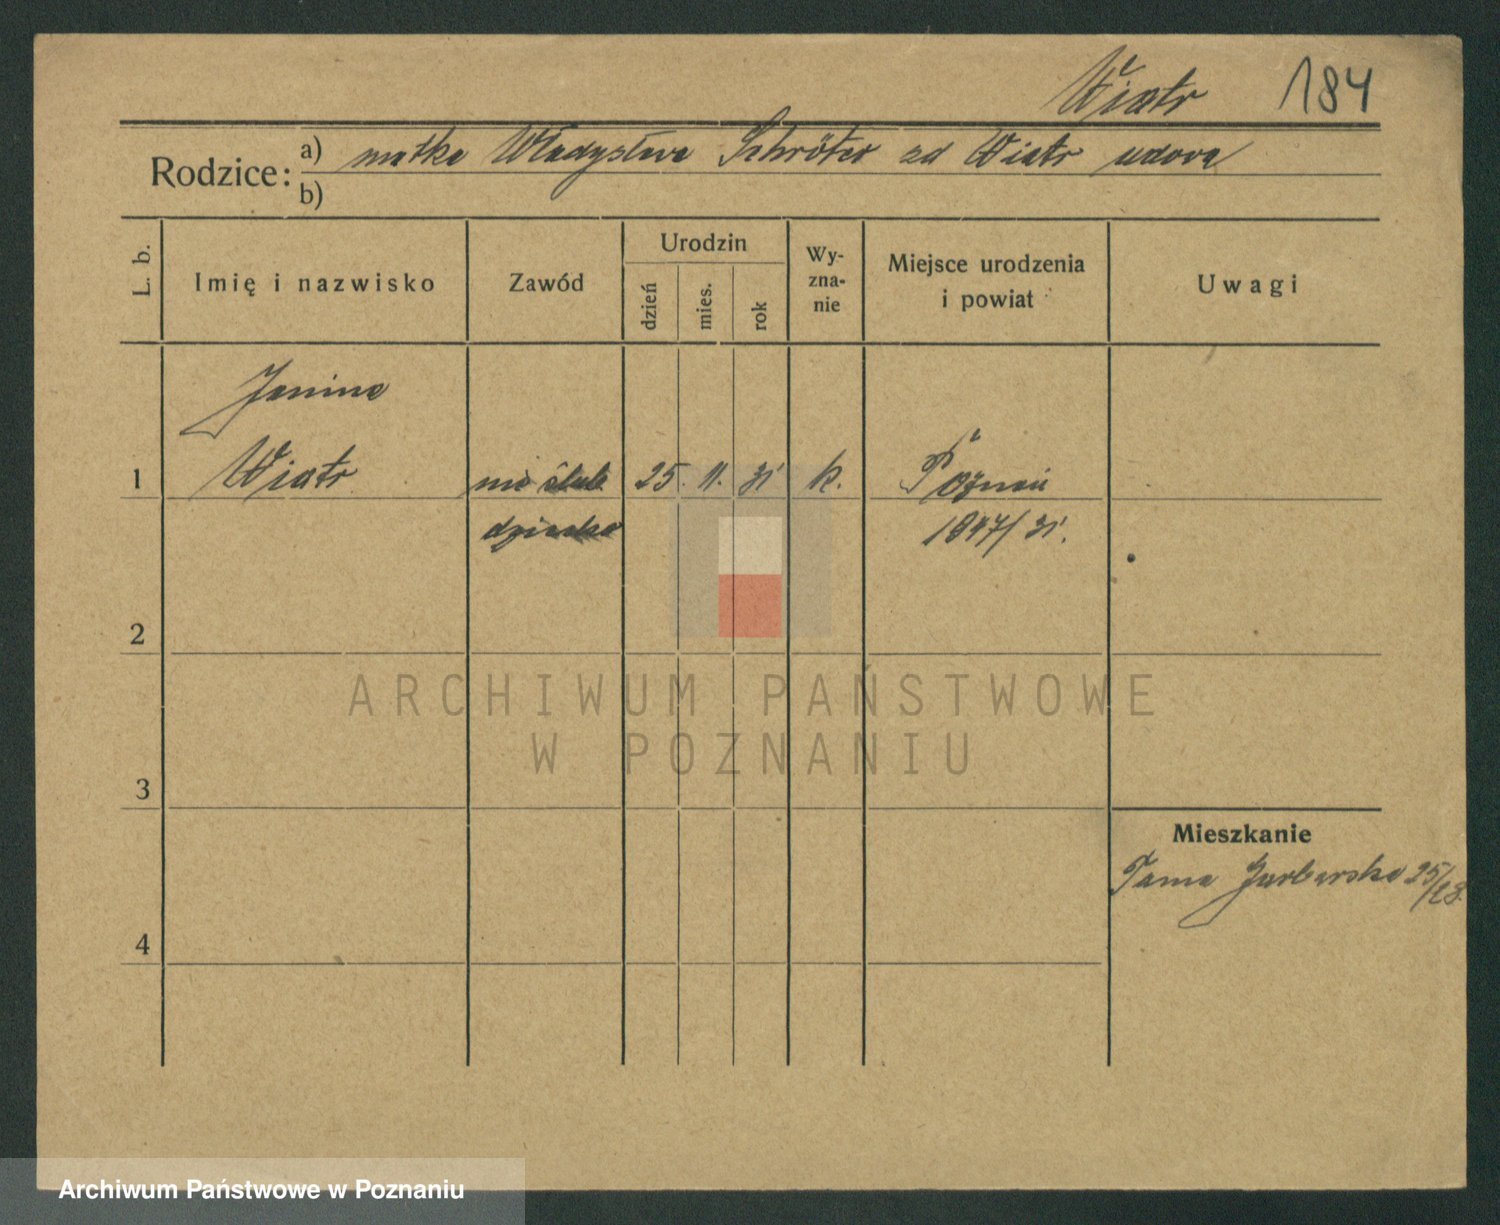 Wiatr 184
Rodzice: a) matka Władysława Schröter zd Wiatr wdowa
b)
L. b.
Imię i nazwisko
Zawód
Urodzin
dzień
mies.
rok
Wy-
zna-
nie
Miejsce urodzenia
i powiat
Uwagi
Janina
1 Wiatr nie ślub 25. 11. 31 k. Poznań
dziecko 1847/31.
2
ARCHIWUM PAŃSTWOWE
W POZNANIU
3
Mieszkanie
Tama Garbarska 25/
4
Archiwum Państwowe w Poznaniu